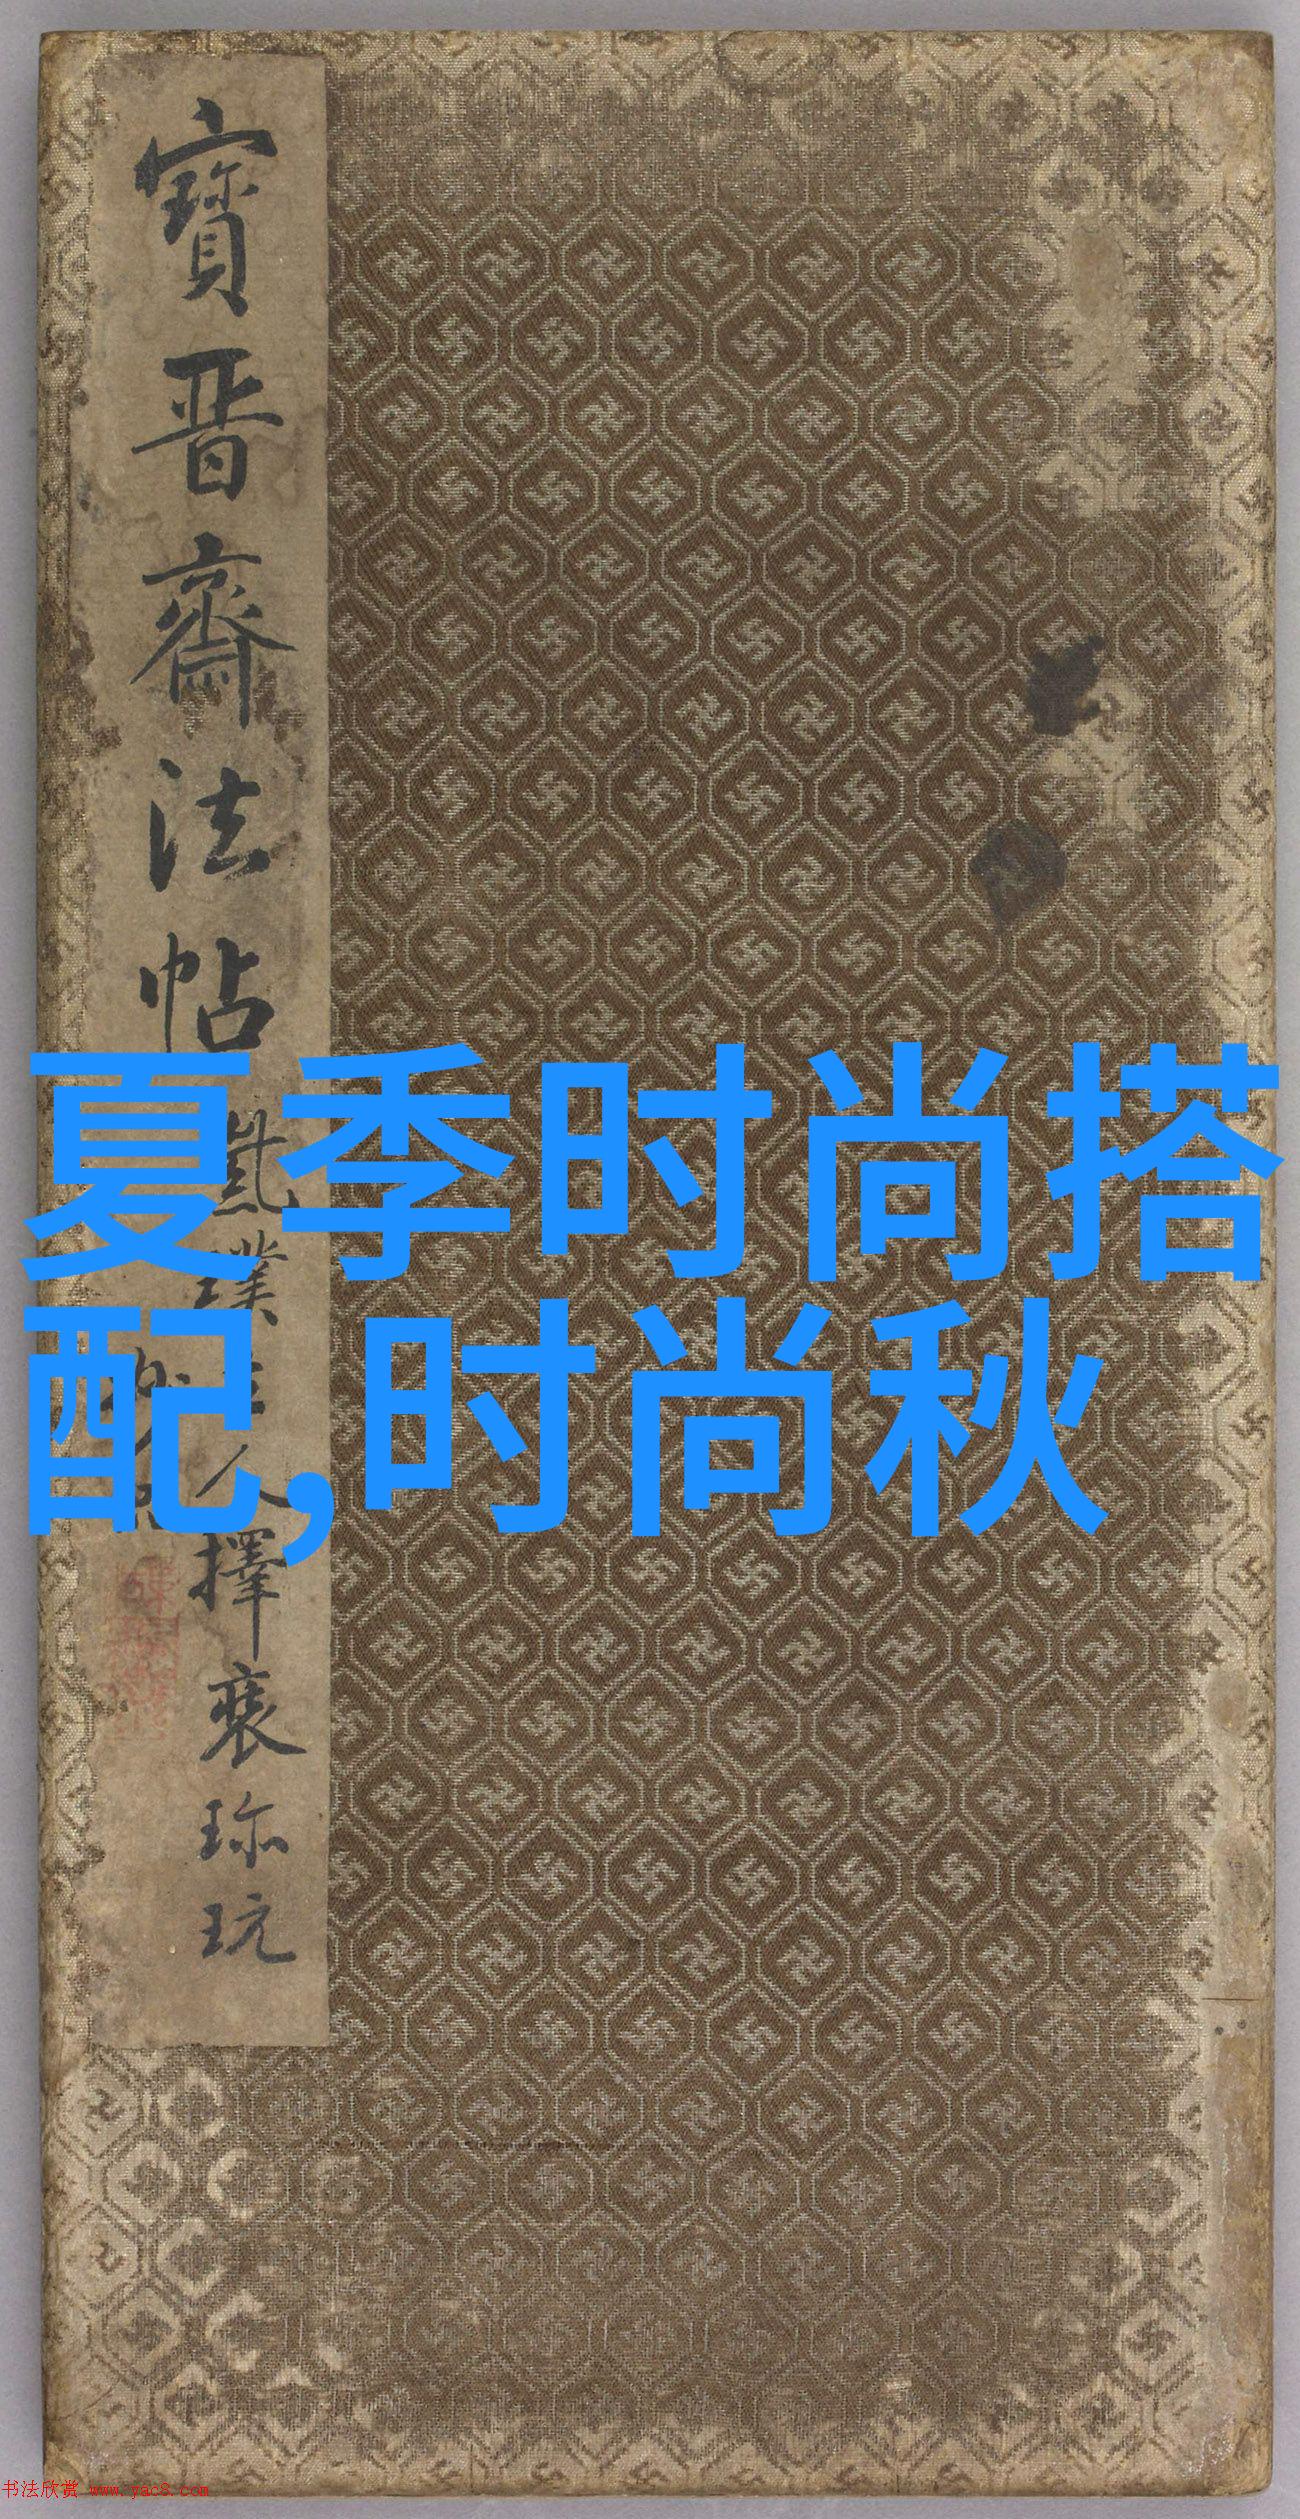 寶晋齋法帖
夏季时尚搭
配,时尚秋
人擇裘珎玩
书法欣赏 www.yac8.com